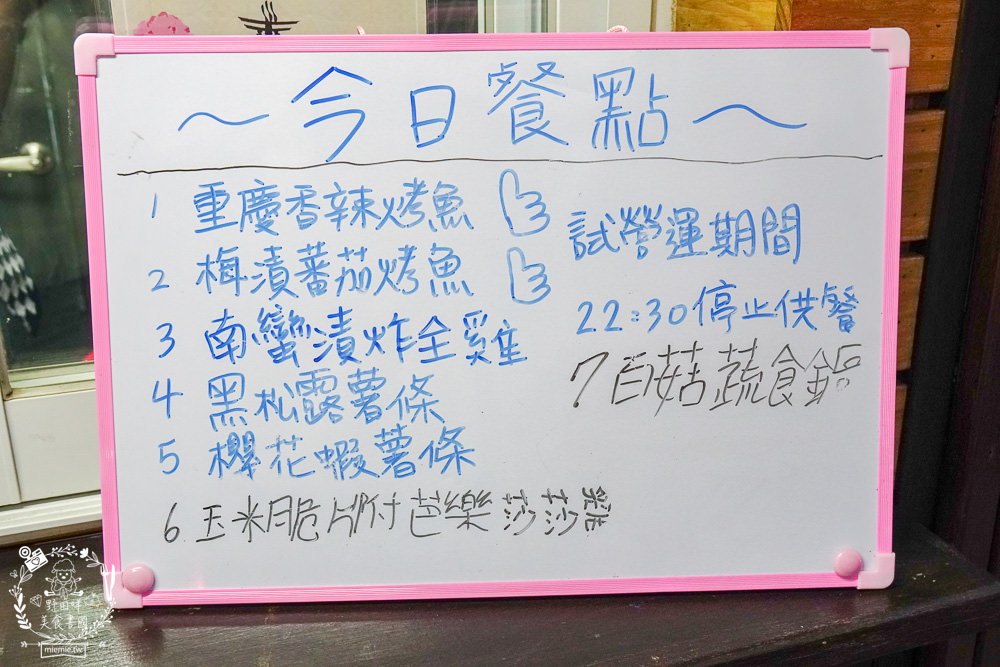 ～今日餐點～
1 重慶香辣烤魚
2 梅漬蕃茄烤魚
3 南蠻漬炸全雞
4 黑松露薯條
5 櫻花蝦薯條
6 玉米脆片附芭樂莎莎雞
試營運期間
22:30停止供餐
7 百菇蔬食鍋
美食客國
miemie.tw